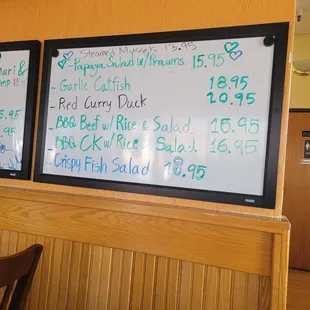 Steamed Mussels 13.95
- Papaya Salad w/ Prawns. 15.95
- Garlic Catfish 18.95
- Red Curry Duck 20.95
- BBQ Beef w/ Rice & Salad 15.95
- BBQ CK w/ Rice & Salad 15.95
- Crispy Fish Salad 18.95